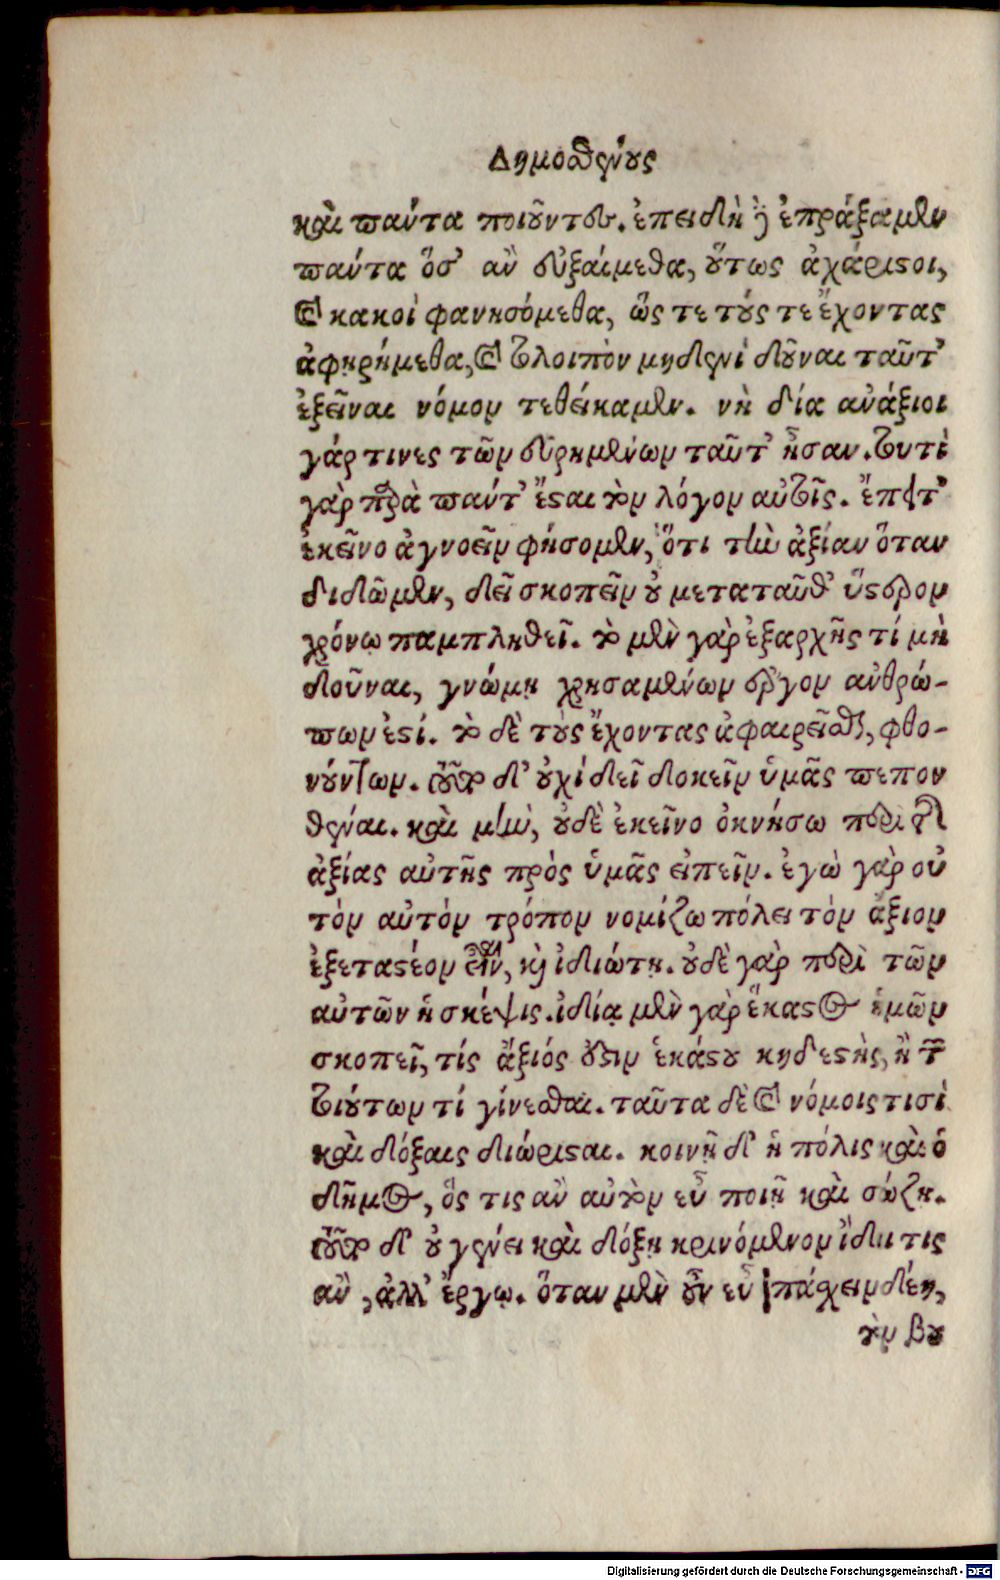 Δημοσθένους
καὶ πάντα ποιοῦντες. ἐπειδὴ δὲ ἐπράξαμεν
πάντα ὅσ' ἂν εὐξαίμεθα, οὕτως ἀχάριστοι,
καὶ κακοὶ φανησόμεθα, ὥς τε τούς τε ἔχοντας
ἀφῃρήμεθα, καὶ τολοιπὸν μηδενὶ δοῦναι ταῦτ'
ἐξεῖναι νόμον τεθείκαμεν. νὴ δία ἀνάξιοι
γάρ τινες τῶν εὑρημένων ταῦτ' ἦσαν. τουτὶ
γὰρ παρὰ πάντ' ἔσται τὸν λόγον αὐτοῖς. ἔπειτ'
ἐκεῖνο ἀγνοεῖν φήσομεν, ὅτι τὴν ἀξίαν ὅταν
διδῶμεν, δεῖ σκοπεῖν οὐ μεταταῦθ' ὕστερον
χρόνῳ παμπληθεῖ. τὸ μὲν γὰρ ἐξαρχῆς τί μὴ
δοῦναι, γνώμῃ χρησαμένων ἔργον ἀνθρώ-
πων ἐστί. τὸ δὲ τοὺς ἔχοντας ἀφαιρεῖσθαι, φθο-
νούντων. τοῦτο δ' οὐχὶ δεῖ δοκεῖν ὑμᾶς πεπον
θέναι. καὶ μὴν, οὐδὲ ἐκεῖνο ὀκνήσω περὶ τῆς
ἀξίας αὐτῆς πρὸς ὑμᾶς εἰπεῖν. ἐγὼ γὰρ οὐ
τὸν αὐτὸν τρόπον νομίζω πόλει τὸν ἄξιον
ἐξεταστέον εἶναι, καὶ ἰδιώτῃ. οὐδὲ γὰρ περὶ τῶν
αὐτῶν ἡ σκέψις. ἰδίᾳ μὲν γὰρ ἕκαστος ἡμῶν
σκοπεῖ, τίς ἄξιός ἐστιν ἑκάστου κηδεστὴς, ἢ τῶν
τοιούτων τί γίνεσθαι. ταῦτα δὲ καὶ νόμοις τισὶ
καὶ δόξαις διώρισται. κοινῇ δ' ἡ πόλις καὶ ὁ
δῆμος, ὅς τις ἂν αὐτὸν εὖ ποιῇ καὶ σώζῃ.
τοῦτο δ' οὐ γένει καὶ δόξῃ κρινόμενον ἴδοι τις
ἂν, ἀλλ' ἔργῳ. ὅταν μὲν οὖν εὖ πάσχειν δέῃ,
τὸν βου